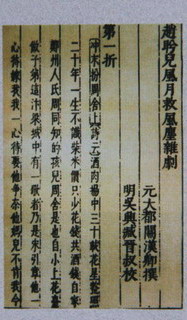 趙盼兒風月救風塵雜劇
元大都關漢卿撰
明吳興臧晉叔校
第一折
冲末扮周舍上詩云酒肉場中三十載花星整照
二十年一生不識柴米價只少花錢共酒錢自家
鄭州人氏周同知的孩兒周舍是也自小上花臺
做子弟這汴梁城中有一歌者乃是宋引章他一
心待嫁我我一心待娶他爭奈他媽兒不肯我今